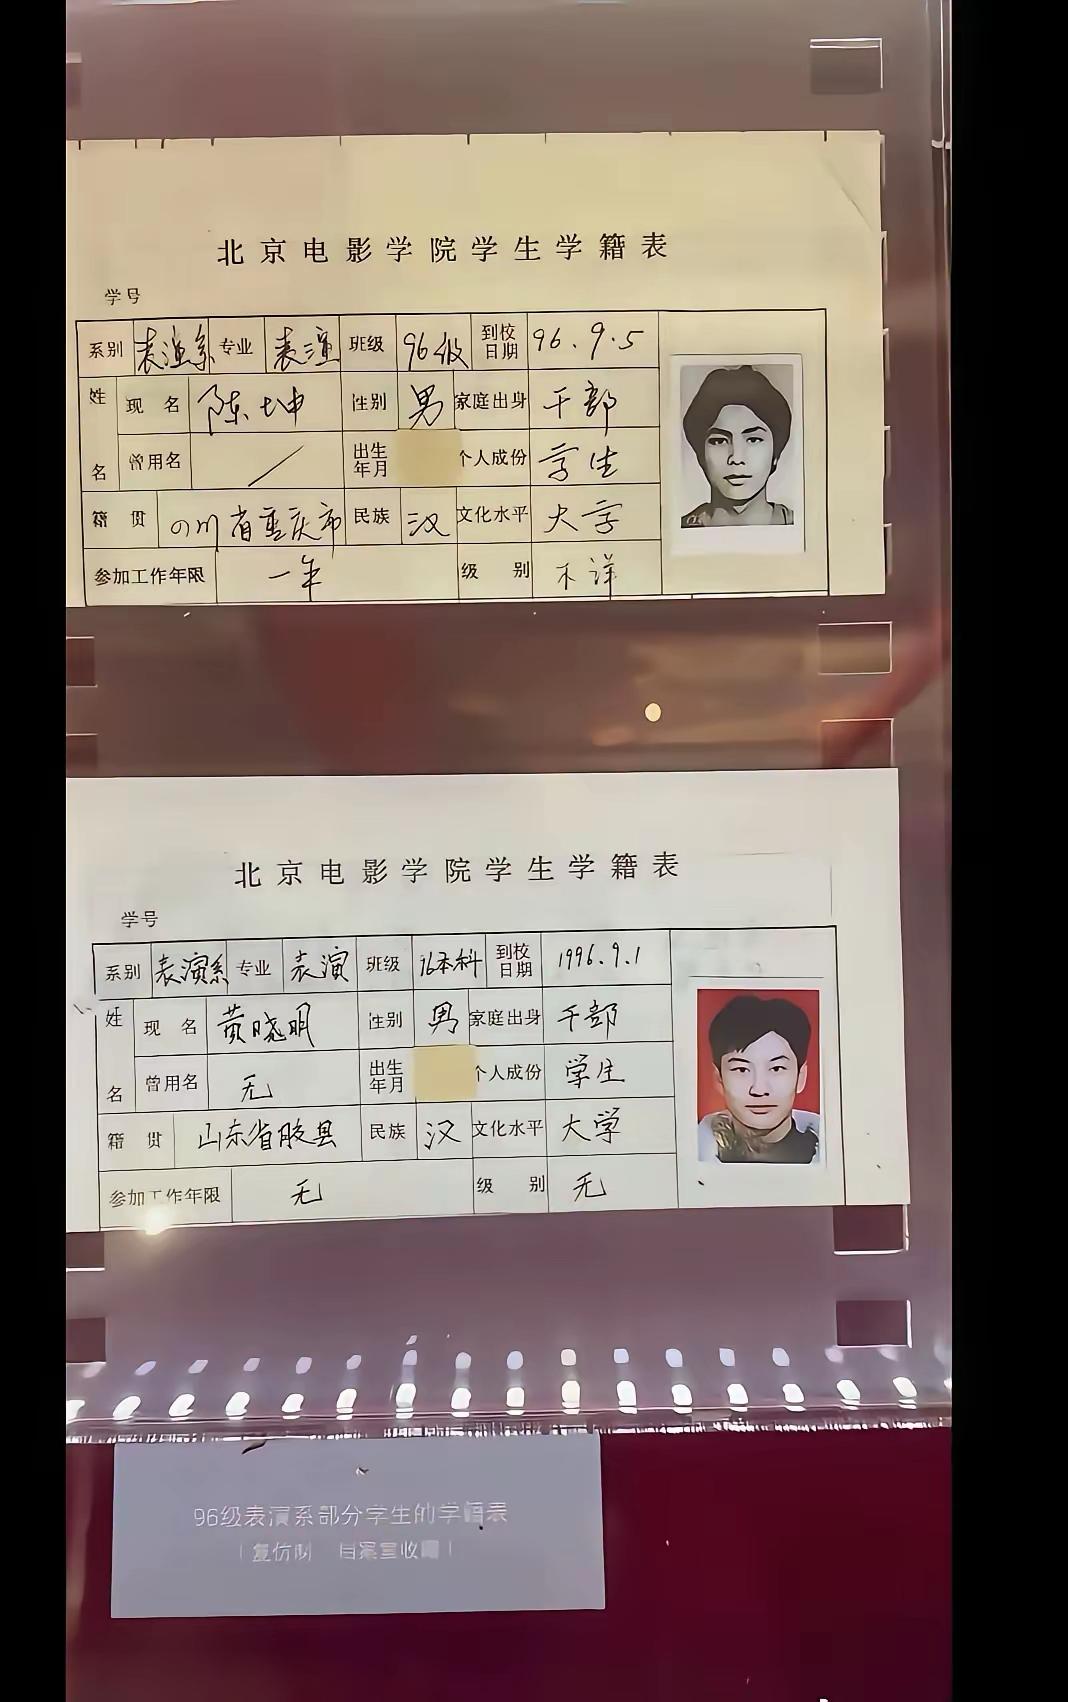 北京电影学院学生学籍表
学号
系别 表演系 专业 表演 班级 96级 到校日期 96.9.5
姓名 现名 陈坤 性别 男 家庭出身 干部
曾用名 / 出生年月 个人成份 学生
籍贯 四川省重庆市 民族 汉 文化水平 大学
参加工作年限 一年 级别 不详
北京电影学院学生学籍表
学号
系别 表演系 专业 表演 班级 96本科 到校日期 1996.9.1
姓名 现名 黄晓明 性别 男 家庭出身 干部
曾用名 无 出生年月 个人成份 学生
籍贯 山东省胶县 民族 汉 文化水平 大学
参加工作年限 无 级别 无
96级表演系部分学生的学籍表